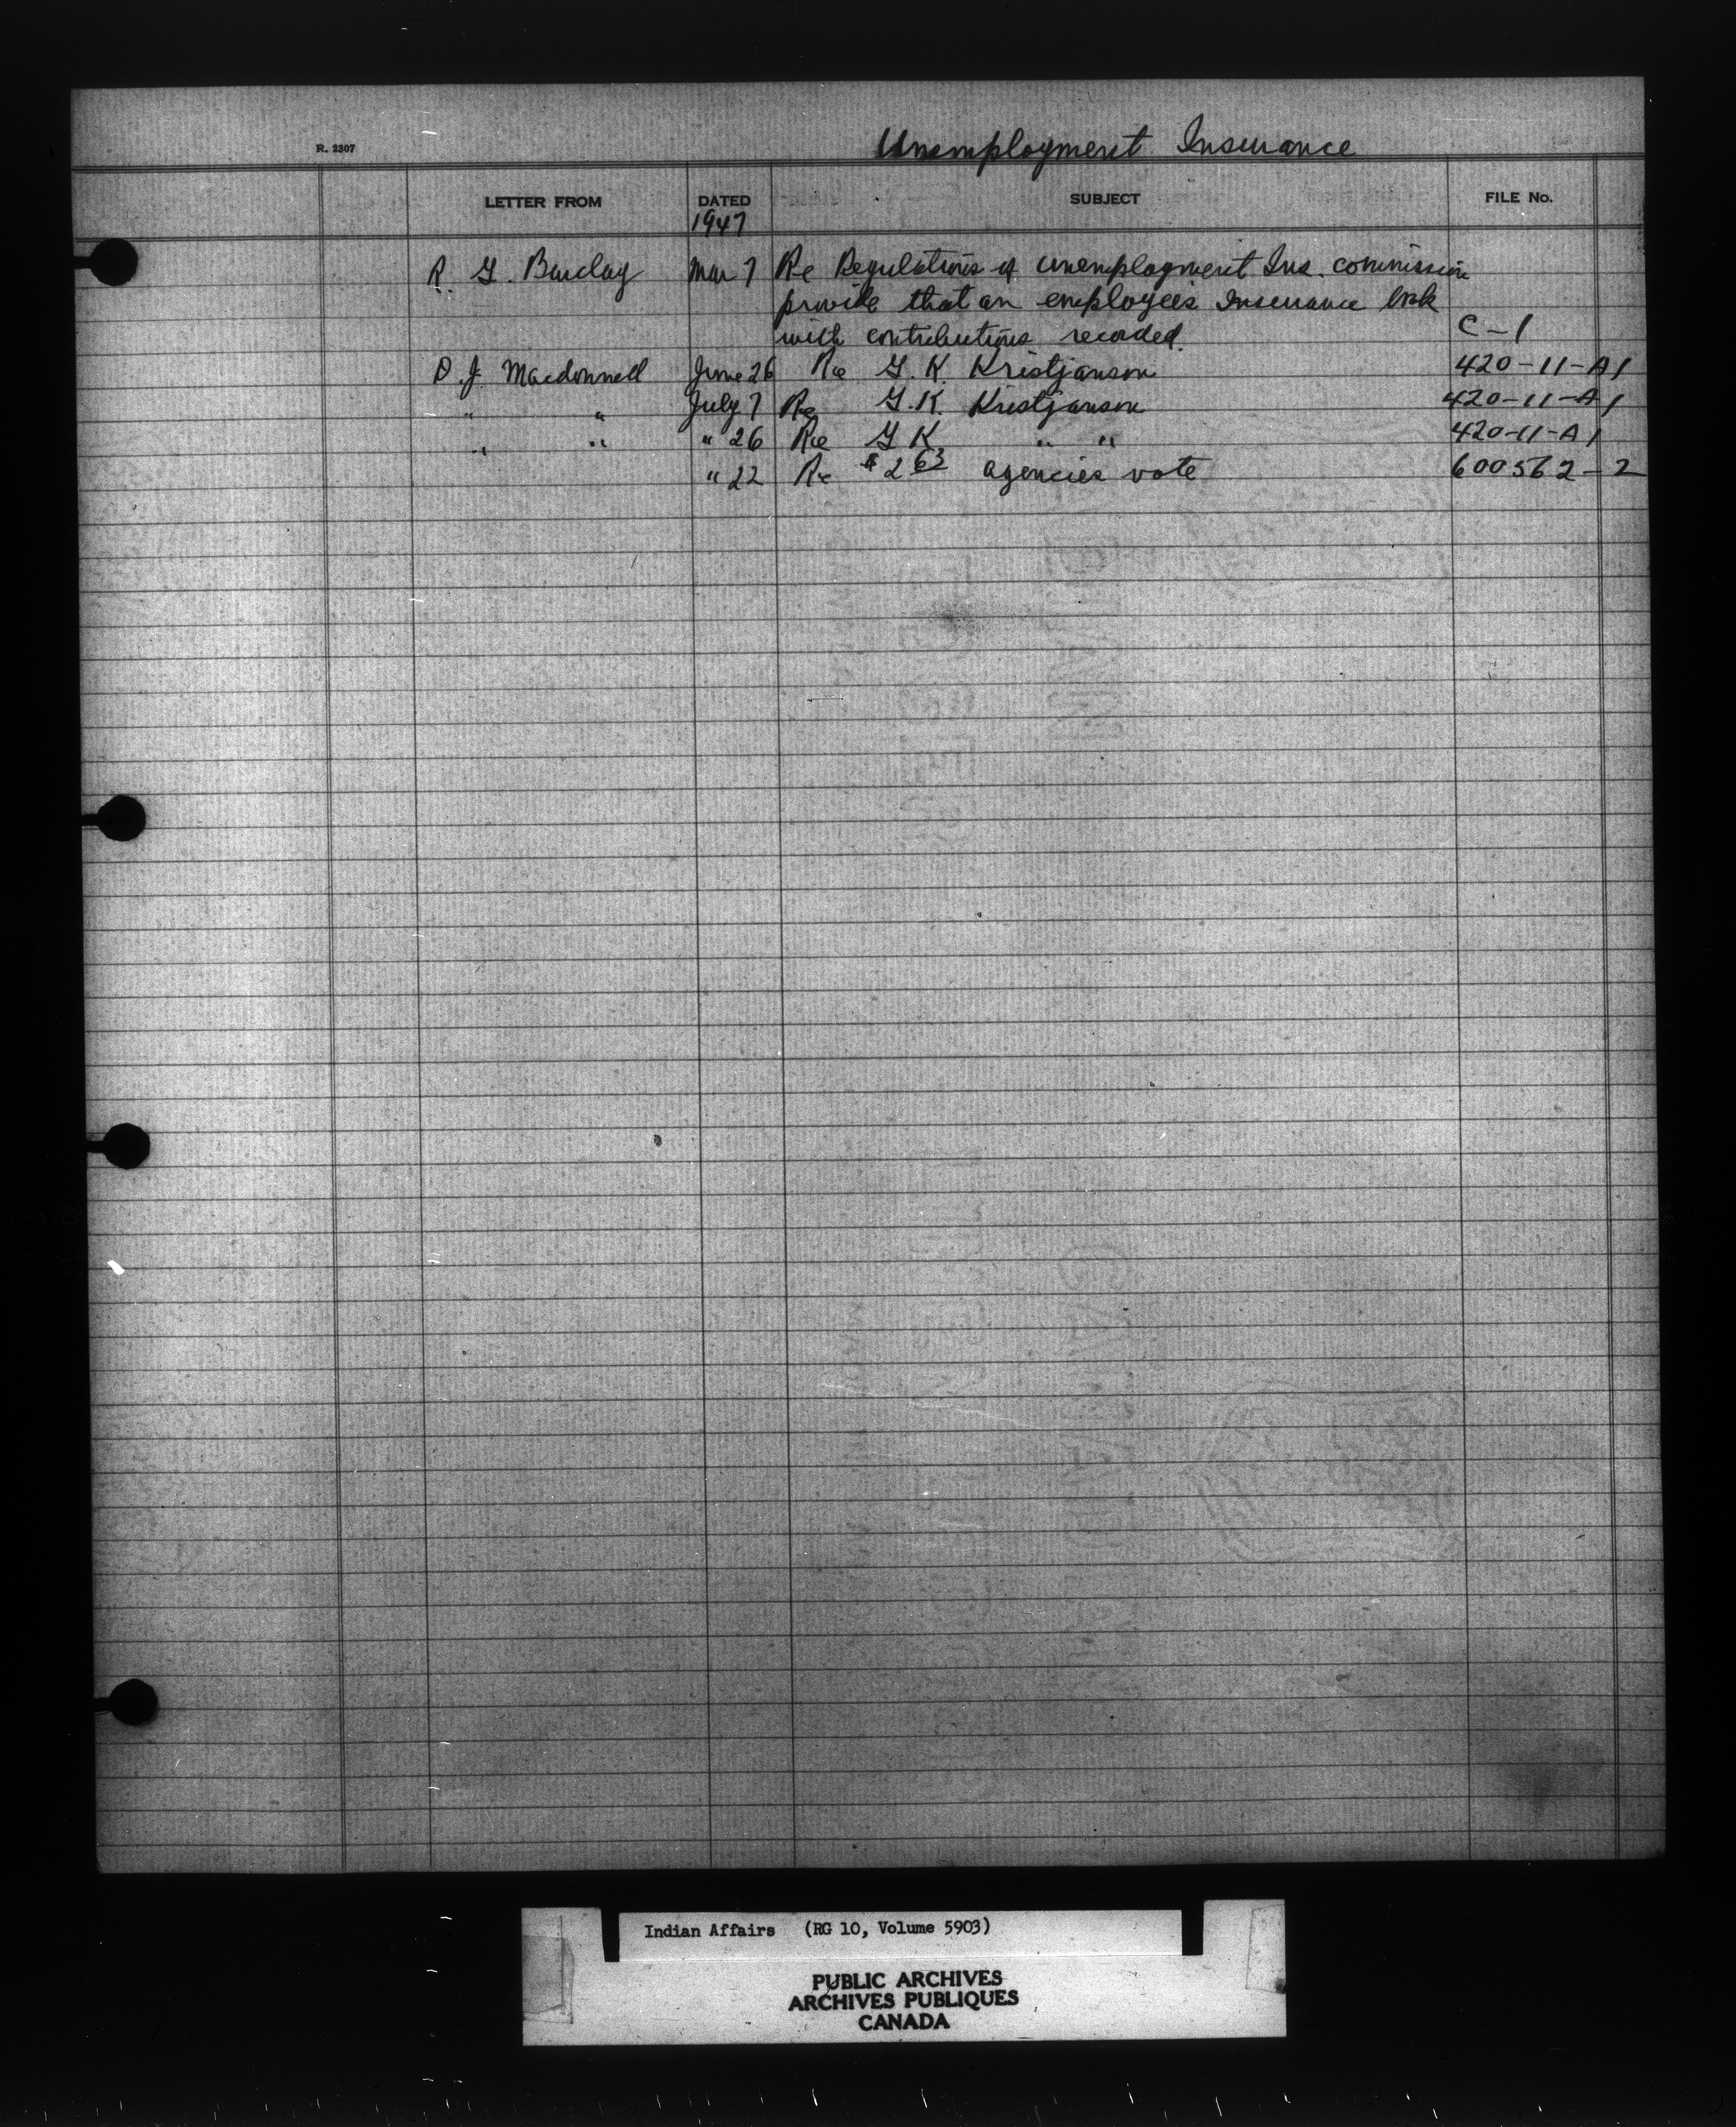 R. 2307
Unemployment Insurance
LETTER FROM DATED SUBJECT FILE No.
1947
R. G. Barclay Mar 7 Re Regulations of unemployment Ins. commission
provide that an employee's Insurance book
with contributions recorded. C-1
D. J. Macdonnell June 26 Re G. K. Kristjanson 420-11-A1
" " July 7 Re G. K. Kristjanson 420-11-A1
" " " 26 Re G K " " 420-11-A1
" 22 Re $2 63 agencies vote 600562-2
Indian Affairs (RG 10, Volume 5903)
PUBLIC ARCHIVES
ARCHIVES PUBLIQUES
CANADA